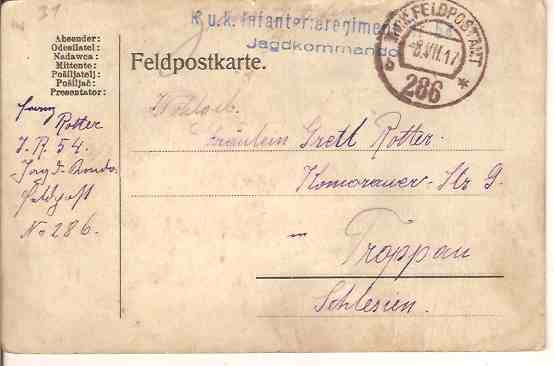 31
K.u.k. Infanterieregiment
Jagdkommando
K.u.K. FELDPOSTAMT
b -8.VII.17 *
286
Absender:
Odesílatel:
Nadawca:
Mittente:
Pošiljatelj:
Pošiljač:
Presentator:
Feldpostkarte.
Rotter
I. R. 54.
Jagd-Kondo.
Feldpost
No 286.
Wohlgeb.
Fräulein Gretl Rotter.
Komorauer-Str 9.
in
Troppau
Schlesien.